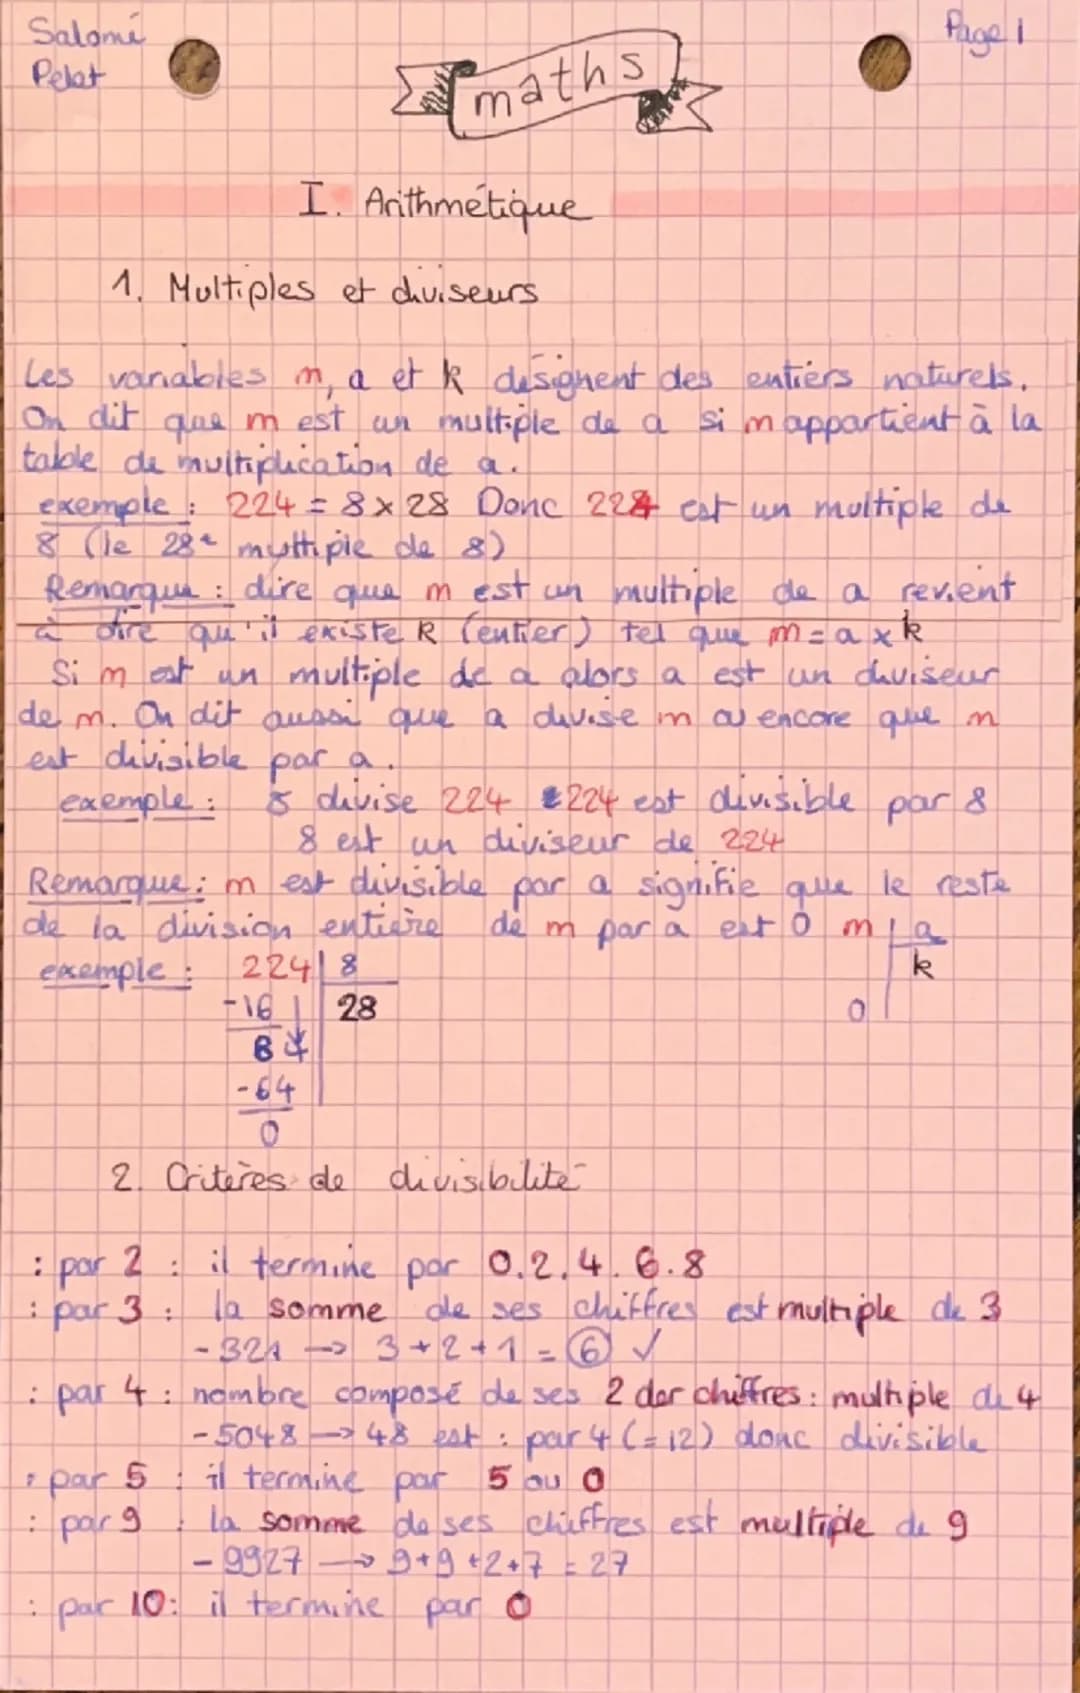 Salomé
Pelat
maths
Page 1
I. Arithmétique
1. Multiples et diviseurs
Les variables m, a et k désignent des entiers naturels.
On dit que m est un multiple de a si m appartient à la
table de multiplication de a.
exemple : 224 = 8 x 28 Donc 224 est un multiple de
8 (le 28e multiple de 8)
Remarque : dire que m est un multiple de a revient
à dire qu'il existe k (entier) tel que m = a x k
Si m est un multiple de a alors a est un diviseur
de m. On dit aussi que a divise m ou encore que m
est divisible par a.
exemple : 8 divise 224 224 est divisible par 8
8 est un diviseur de 224
Remarque : m est divisible par a signifie que le reste
de la division entière de m par a est 0 m | a
exemple : 224 | 8 k
-16 28 0
64
-64
0
2. Critères de divisibilité
: par 2 : il termine par 0.2.4.6.8
: par 3 : la somme de ses chiffres est multiple de 3
- 321 → 3+2+1 = 6 ✓
: par 4 : nombre composé de ses 2 der chiffres : multiple de 4
- 5048 → 48 est : par 4 (=12) donc divisible
: par 5 : il termine par 5 ou 0
: par 9 : la somme de ses chiffres est multiple de 9
- 9927 → 9+9+2+7 = 27
: par 10 : il termine par 0